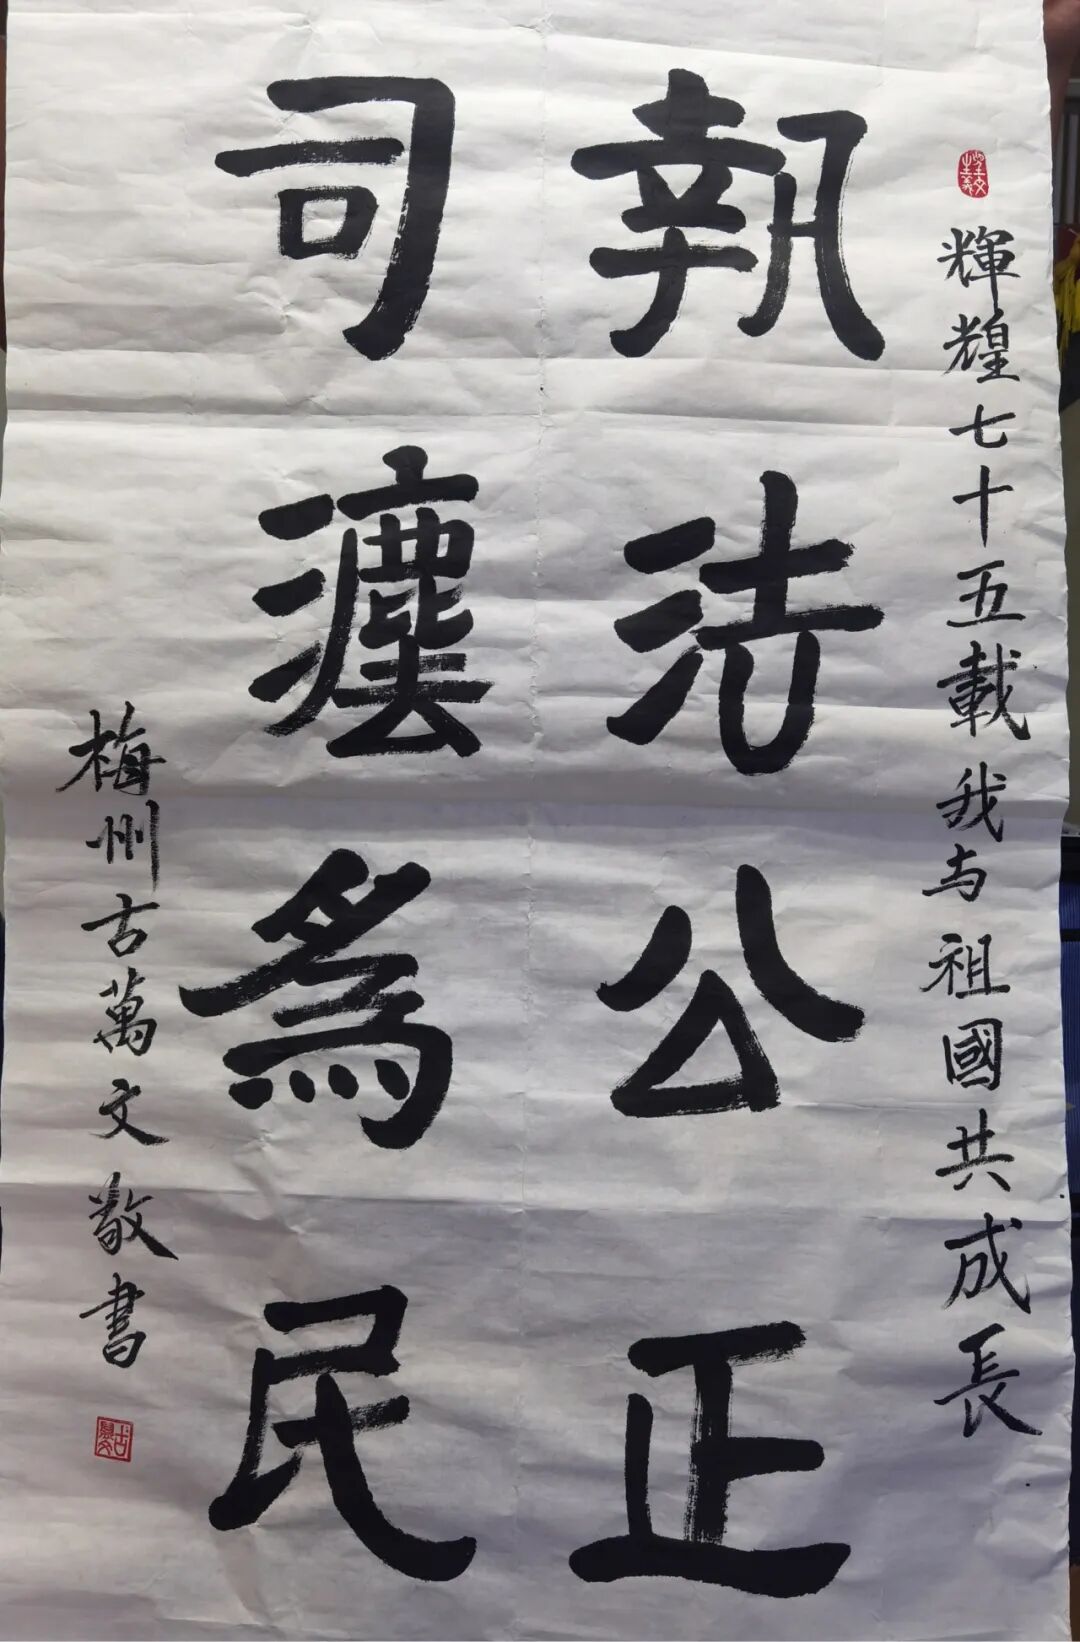 輝煌七十五載我与祖國共成長
執法公正
司灋爲民
梅州古萬文敬書